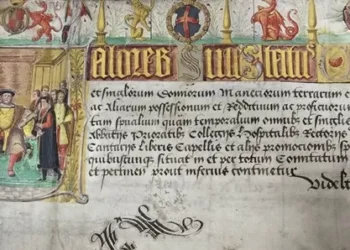 Valores Sive Extente
et singulorum Domiorum Maneriorum terrarum e
ac Aliarum possessionum et Reddituum ac proficiorum
tam spualium quam temporalium omnibus et singlis
Abbatiis Prioratibus Collegiis Hospitalibus Rectoriis
Cantariis Liberis Capellis et aliis promocionibus sp
quibuscunque situat in et per totum Comitatum
et pertinen prout inferius continetur
Videlt